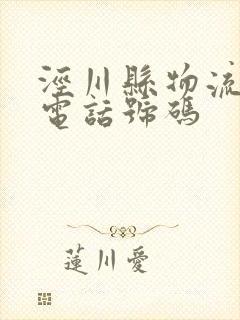 涇川縣物流
電話號碼
蓮川愛